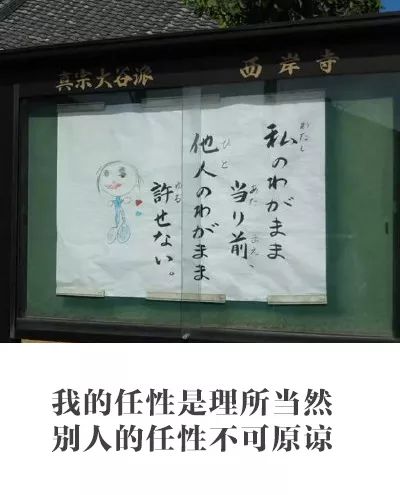 真宗大谷派 西岸寺
私のわがまま
わたし
当り前、
あた まえ
他人のわがまま
ひと
許せない。
ゆる
我的任性是理所当然
别人的任性不可原谅